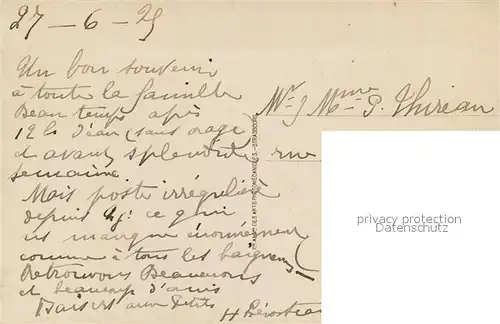 27 - 6 - 25
Un bon souvenir
à toute la famille
Beau temps après
12 h d'eau (sans orage)
et avant splendide
semaine
Mais poste irrégulière
depuis ce qui
ns manque énormément
comme à tous les baigneurs
Retrouvons Beaucoup
et beaucoup d'amis
Baisers aux petits
H
Mr & Mme P. Thireau
rue
ARTS PHOTOMÉCANIQUES - STRASBOURG
privacy protection
Datenschutz